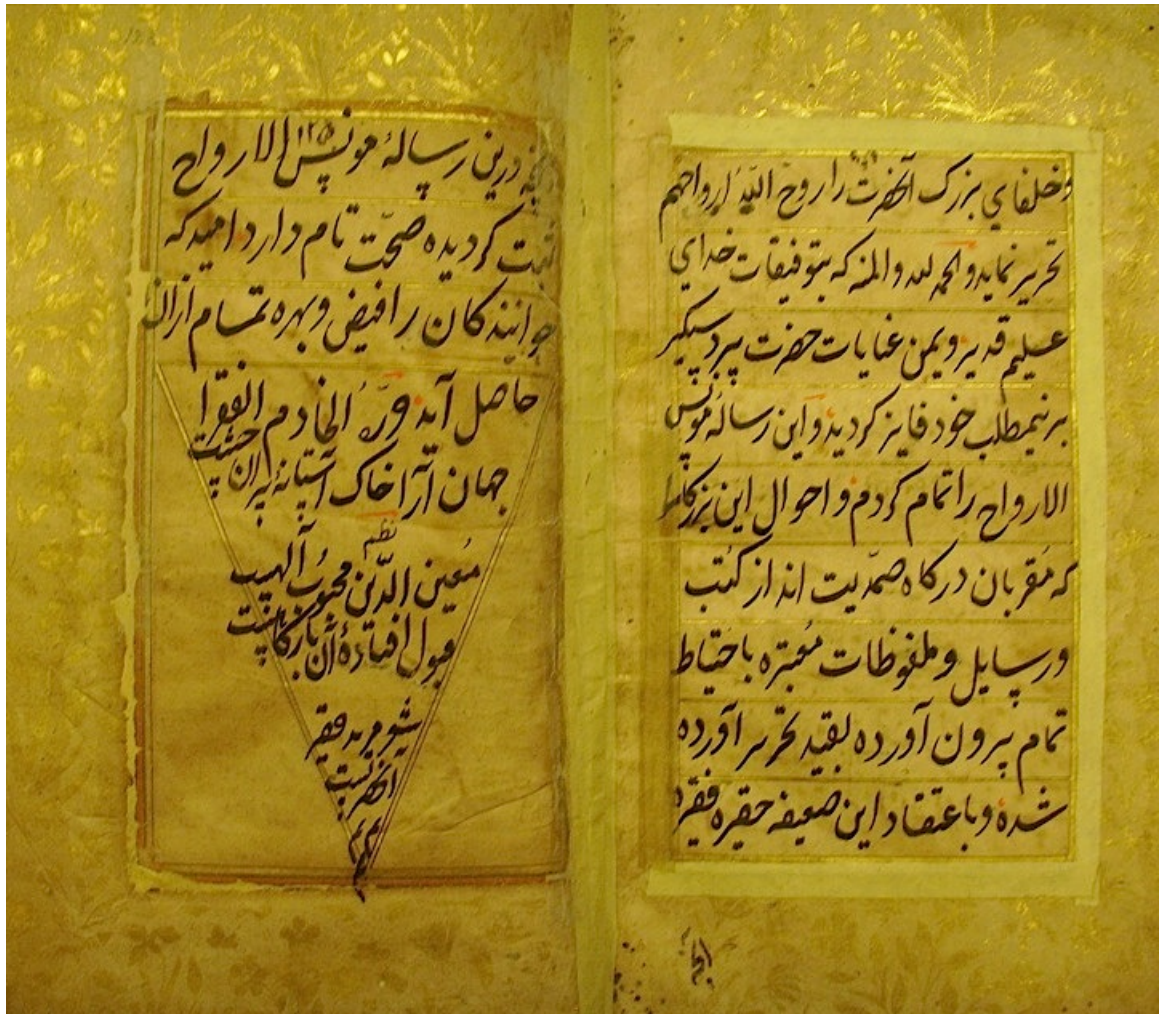 وخلفاي بزرک آنحضرت را روح الله ارواحهم
تحریر نماید و الحمد لله و المنه که بتوفیقات خدای
علیم قدیر و یمن عنایات حضرت پیر دستگیر
برین مطلب خود فایز کردیده و این رسالهٔ مونس
الارواح را تمام کردم و احوال این بزرکان را
که مقربان درکاه صمدیت اند از کتب
و رسایل و ملفوظات معتبره باحتیاط
تمام بیرون آورده بقید تحریر آورده
شده و باعتقاد این ضعیفه حقیره فقیره
آنچه
آنچه درین رسالهٔ مونس الارواح
۱۲۵
ثبت کردیده صحّت تام دارد امید که
خوانندکان را فیض و بهره تمام ازان
حاصل آید حرّره الخادم الفقرا
جهان آرا خاک آستانهٔ پیران چشت
نظم
معین الدین محبوب آلهیست
قبول افتادهٔ آن بارکاهیست
فقیر
آنحضرتست